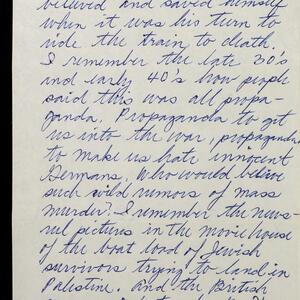 believed and saved himself
when it was his turn to
ride the train to death.
I remember the late 30's
and early 40's how people
said this was all propa-
ganda. Propaganda to get
us into the war, propaganda
to make us hate innocent
Germans. Who would believe
such wild rumors of mass
murder? I remember the news-
reel pictures in the movie house
of the boat load of Jewish
survivors trying to land in
Palestine. And the British